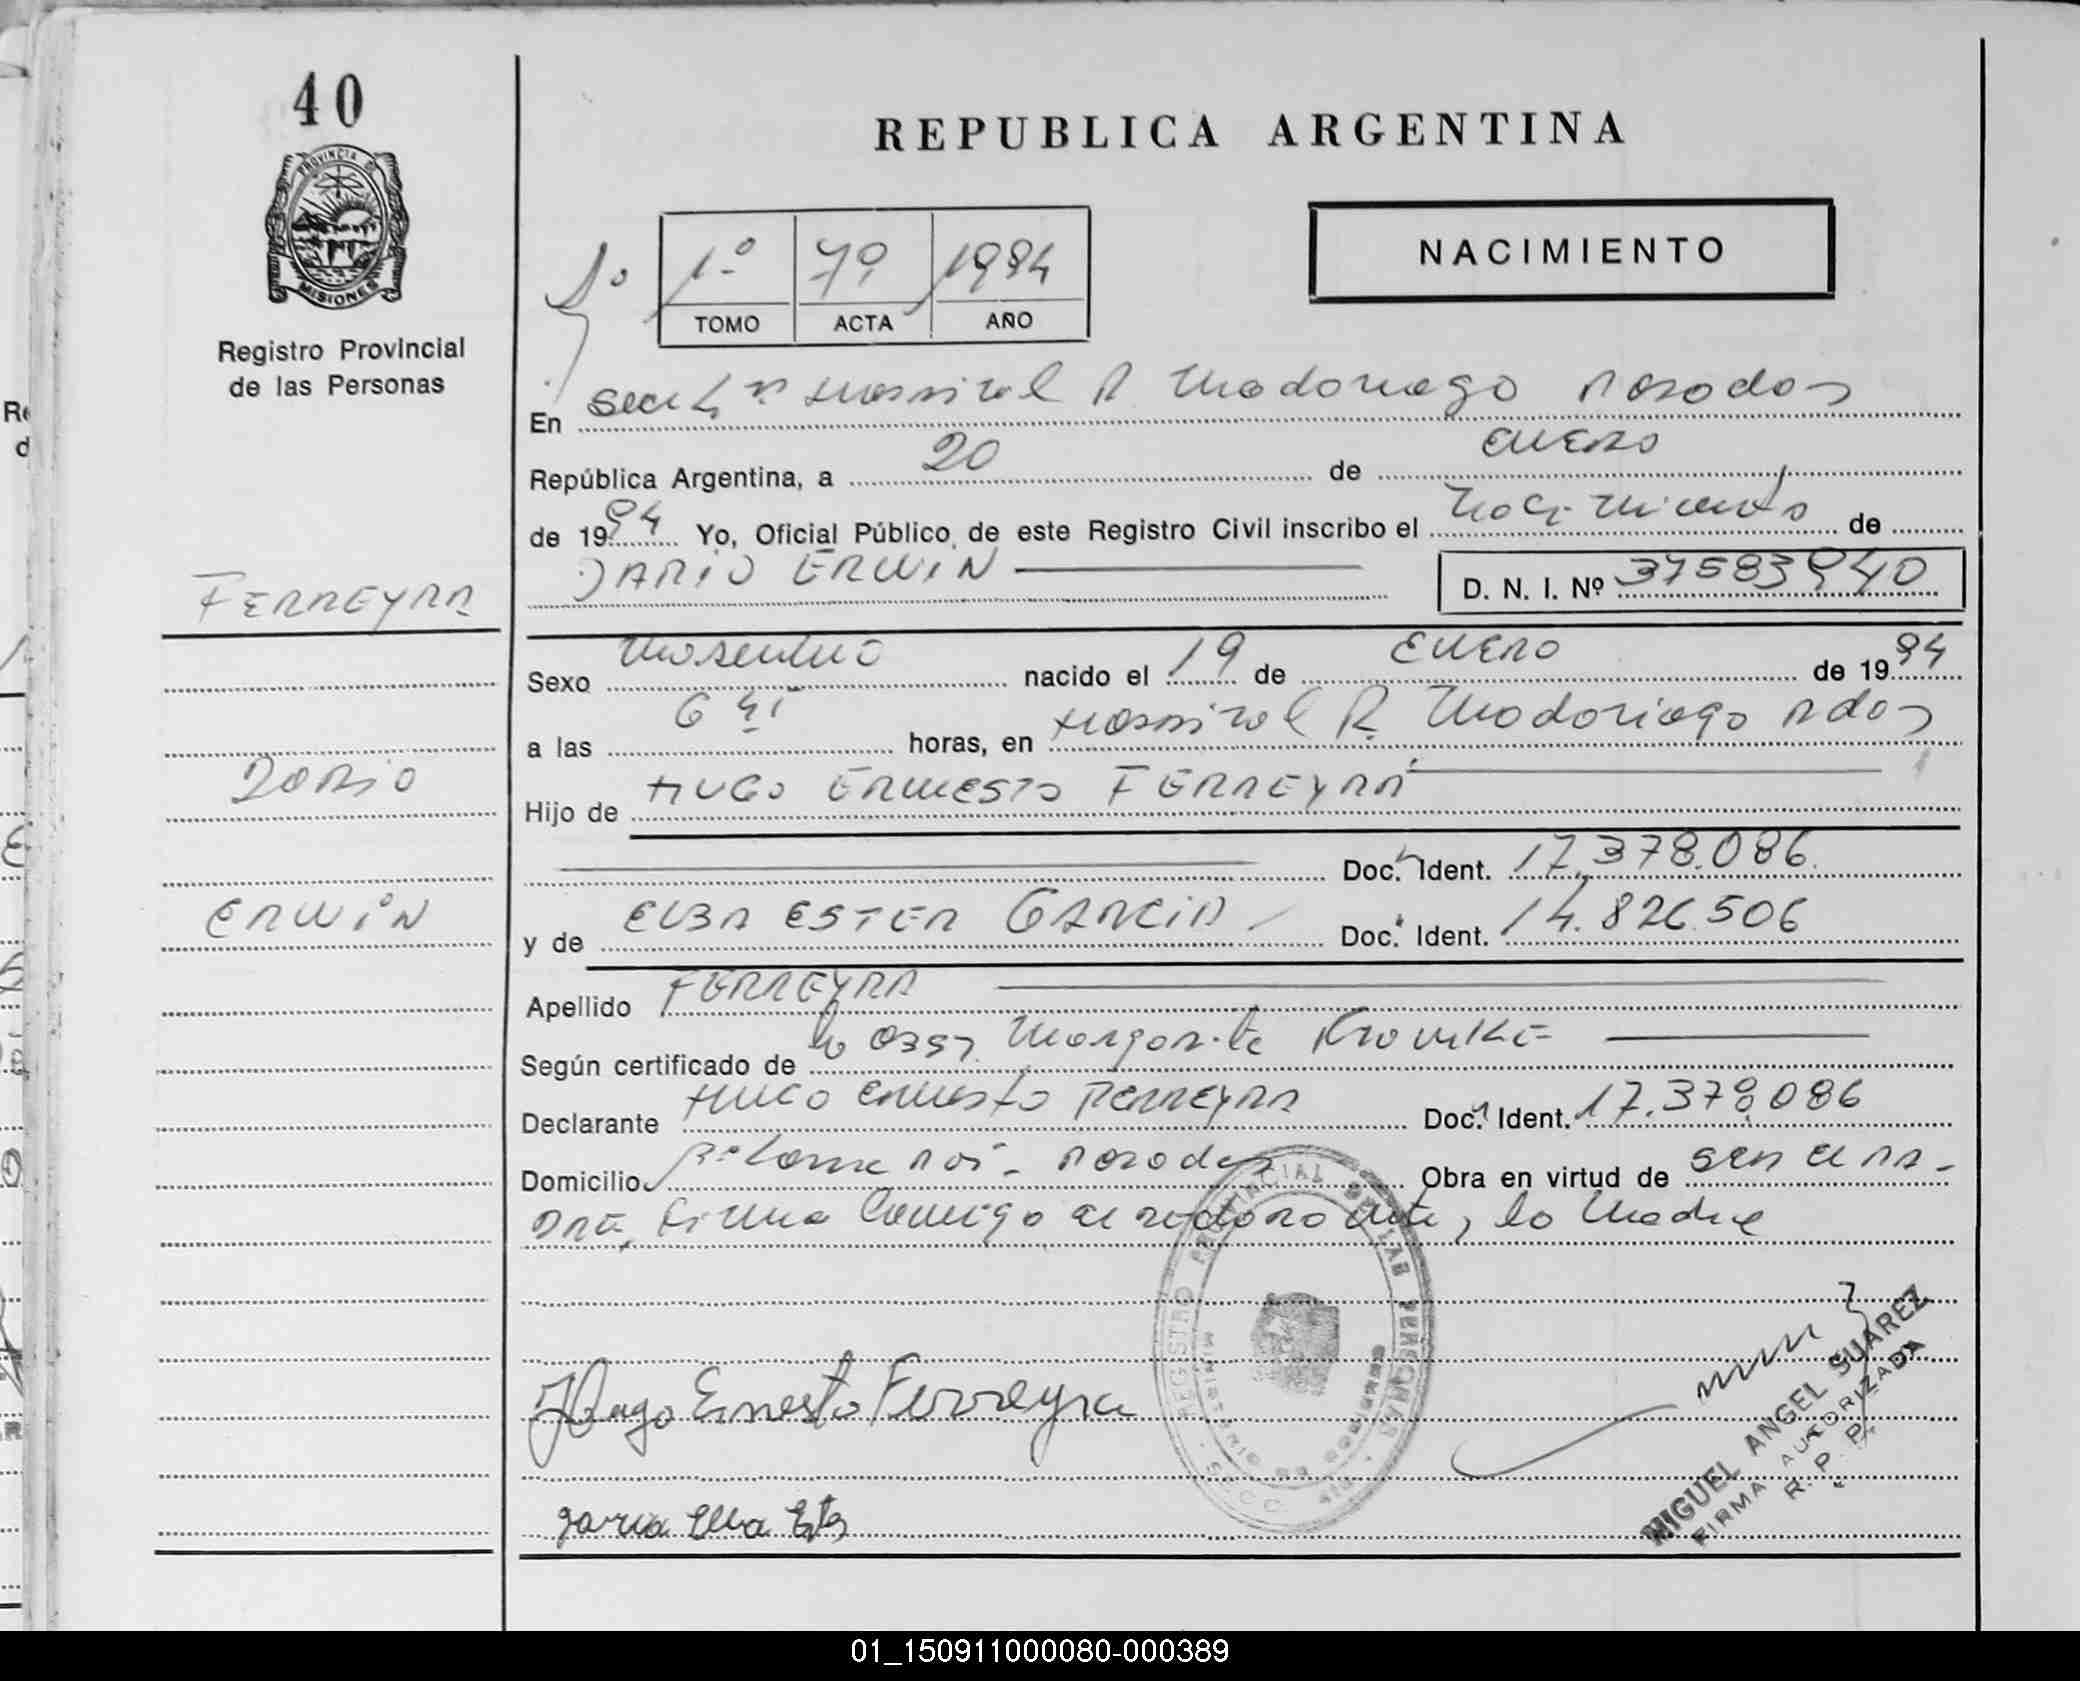 40
PROVINCIA D
MISIONES
Registro Provincial
de las Personas
REPUBLICA ARGENTINA
NACIMIENTO
1º 1º 79 1994
TOMO ACTA AÑO
En Secc Hospital R. Madariaga Posadas
República Argentina, a 20 de ENERO
de 1994 Yo, Oficial Público de este Registro Civil inscribo el Nacimiento de
DARIO ERWIN D. N. I. Nº 37583940
FERREYRA
Sexo Masculino nacido el 19 de ENERO de 1994
a las 6 horas, en Hospital R. Madariaga Pdas
DARIO
Hijo de HUGO ERNESTO FERREYRA
Doc. Ident. 17.378.086.
ERWIN
y de ELBA ESTER GARCIA Doc. Ident. 14.826.506
Apellido FERREYRA
Según certificado de la Obst. Margarita
Declarante HUGO Ernesto FERREYRA Doc. Ident. 17.378.086
Domicilio Posadas Obra en virtud de ser el PA-
DRE, Firma Conmigo el declarante, la Madre
REGISTRO PROVINCIAL DE LAS PERSONAS
MINISTERIO DE GOBIERNO
Hugo Ernesto Ferreyra
Garcia Elba Ester
MIGUEL ANGEL SUAREZ
FIRMA AUTORIZADA
R. P. P.
01_150911000080-000389